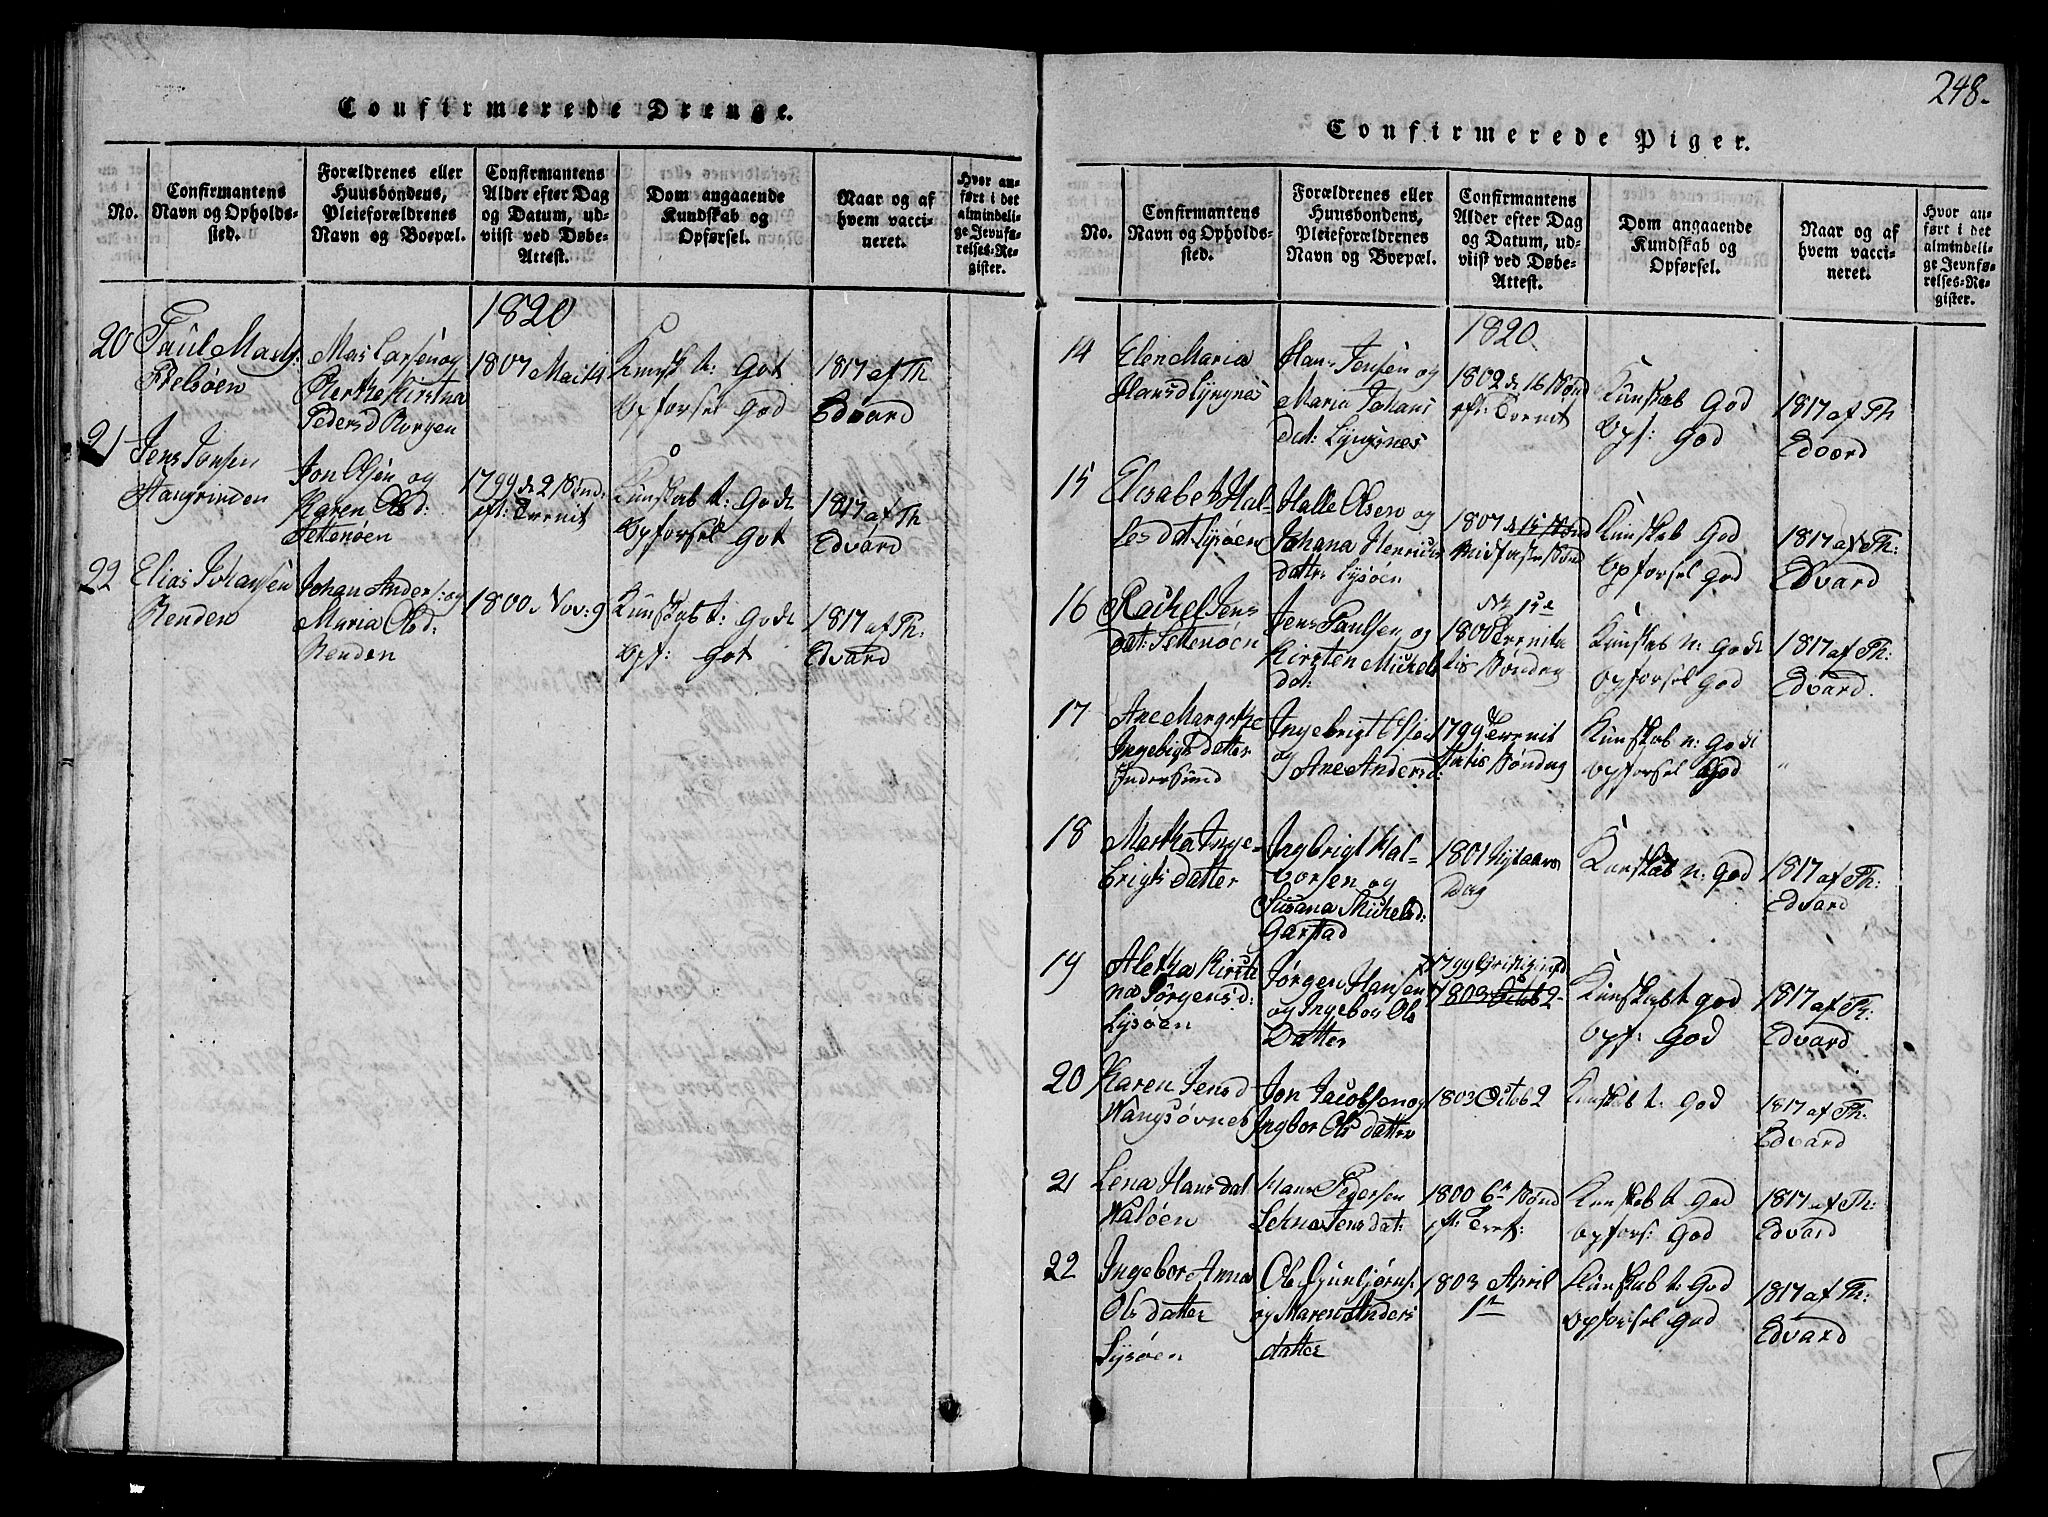 Confirmerede Drenge.
No.
Confirmantens
Navn og Opholds-
sted.
Forældrenes eller
Huusbondens,
Pleieforældrenes
Navn og Boepæl.
Confirmantens
Alder efter Dag
og Datum, ud-
viist ved Døbe-
Attest.
Dom angaaende
Kundskab og
Opførsel.
Naar og af
hvem vacci-
neret.
Hvor an-
ført i det
almindeli-
ge Jevnfø-
relses-Re-
gister.
1820
20
Paul Mads:
Edelsøen
Mas Larsen og
Berthe Kirstna
Pedersd Rorgen
1807 Mai 14
Kunsk t: Got
Opforsel God
1817 af Th
Edvard
21
Jens Jonsen
Stangrinden
Jon Olsen og
Karen Olsd:
Settenøen
1799 de 21 Sønd:
eft: Trenit
Kunskab t: Gode
Opforsel Got
1817 af Th
Edvard
22
Elias Johansen
Renden
Johan Anders: og
Maria Olsd:
Renden
1800 Nov: 9
Kunskab t: Gode
Opf: Got
1817 af Th:
Edvard
248.
Confirmerede Piger.
No.
Confirmantens
Navn og Opholds-
sted.
Forældrenes eller
Huusbondens,
Pleieforældrenes
Navn og Boepæl.
Confirmantens
Alder efter Dag
og Datum, ud-
viist ved Døbe-
Attest.
Dom angaaende
Kundskab og
Opførsel.
Naar og af
hvem vacci-
neret.
Hvor an-
ført i det
almindeli-
ge Jevnfø-
relses-Re-
gister.
1820
14
Elen Maria
Hansd Lyngnes
Hans Jensen og
Maria Johans
dat: Lyngsnes
1802 de 16 Sønd
eft: Trenit
Kunskab God
Opf: God
1817 af Th
Edvard
15
Elisabet Hal-
les dat Lysøen
Halle Olsen og
Johana Henrics
datter Lysøen
1807 d 15 Sønd
Midfaste Sønd
Kunskab God
Opforsel God
1817 af Th:
Edvard
16
Rachel Jens
dat: Settenøen
Jens Paulsen og
Kirsten Michels
dat:
1800 Trenita
tis Søndag
Kunskab n: Gode
Opforsel God
1817 af Th:
Edvard.
17
Ane Margrethe
Ingebrigts Datter
Indersund
Ingebrigt
og Ane Andersd:
1799 Trenit
tatis Søndag
Kunskab n: Gode
Opforsel God
"
18
Martha Inge-
brigts datter
Ingbrigt Hal-
vorsen og
Susana Michelsd:
Garstad
1801 Nytaars
dag
Kunskab n: God
1817 af Th:
Edvard
19
Aletha Kirsti
na Jørgensd:
Lysøen
Jørgen Hansen
og Ingebor Ols
Datter
1799
1803 Octob 2
Kunskab t God
Opf: God
1817 af Th:
Edvard
20
Karen Jensd
Wangsøvnes
Jon Jacobsen og
Ingbor Ols datter
1803 Octob 2
Kunskab t: God
1817 af Th:
Edvard
21
Lena Hans dat
Waløen
Hans Pedersen
Lehna Jens dat:
1800 6te Sønd
eft: Tref:
Kunskab t God
Opfors: God
1817 af Th:
Edvard
22
Ingebor Anna
Ols datter
Lysøen
Ole Gunbjørns:
og Maren Anders
datter
1803 April
1te
Kunskab t: God
Opforsel God
1817 af Th:
Edvard